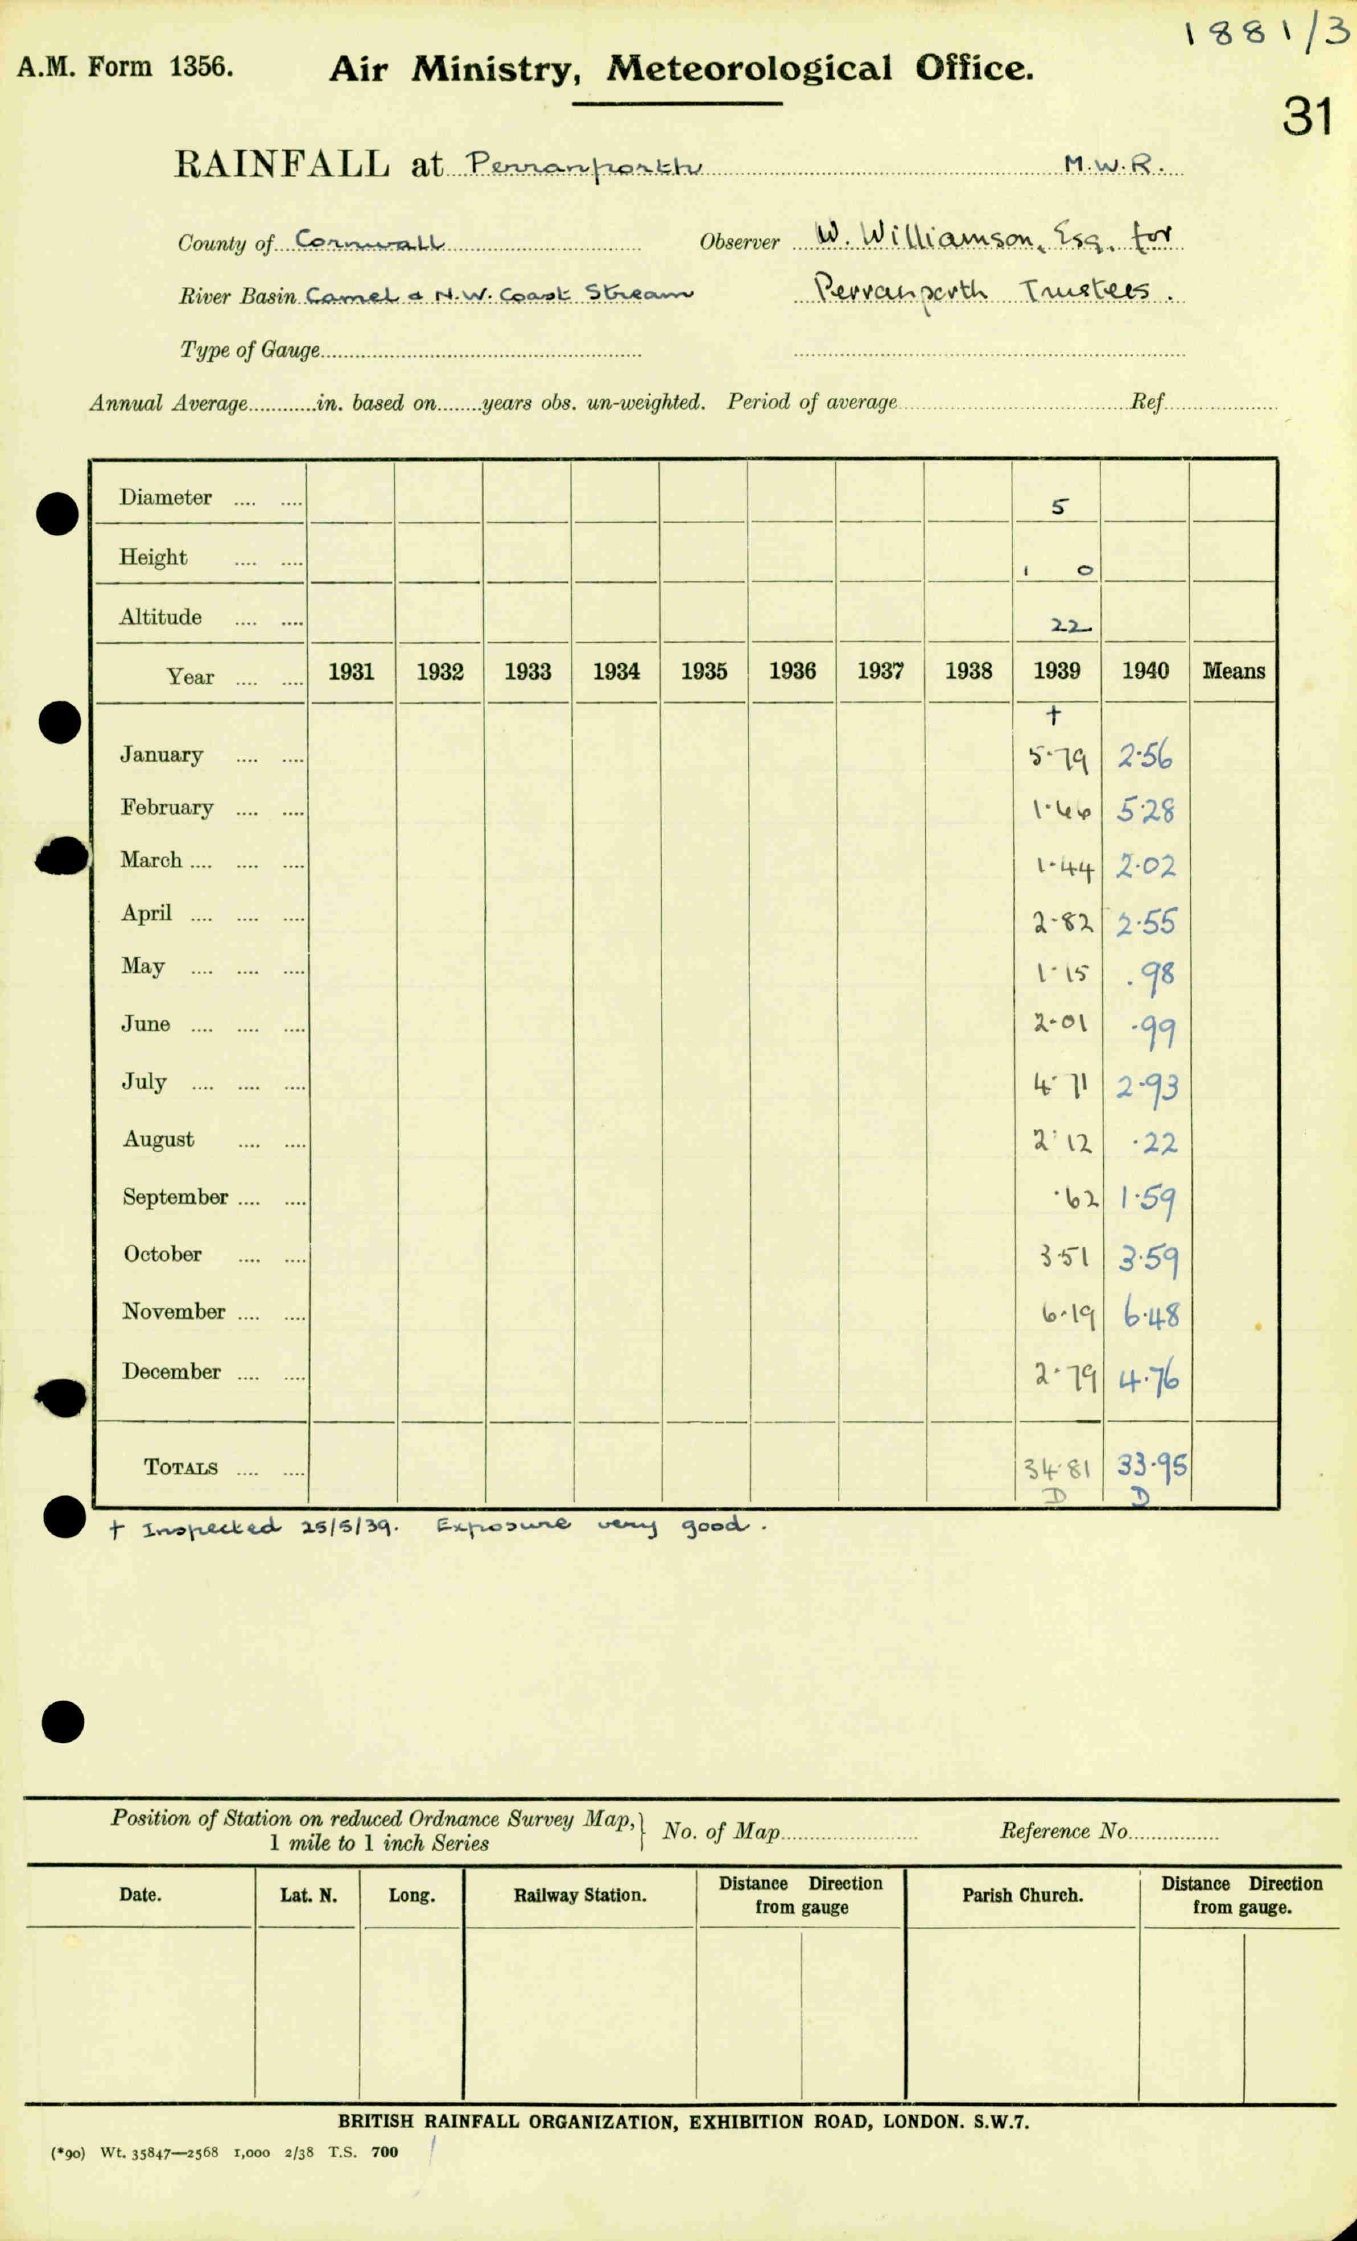 1881/3
A.M. Form 1356. Air Ministry, Meteorological Office.
31
RAINFALL at Perranporth M.W.R.
County of Cornwall Observer W. Williamson, Esq. for
River Basin Camel & N.W. Coast Stream Perranporth Trustees.
Type of Gauge
Annual Average in. based on years obs. un-weighted. Period of average Ref.
Diameter 5
Height 1 0
Altitude 22
Year 1931 1932 1933 1934 1935 1936 1937 1938 1939 1940 Means
†
January 5·79 2·56
February 1·66 5·28
March 1·44 2·02
April 2·82 2·55
May 1·15 .98
June 2·01 ·99
July 4·71 2·93
August 2·12 ·22
September ·62 1·59
October 3·51 3·59
November 6·19 6·48
December 2·79 4·76
TOTALS 34·81 33·95
D D
† Inspected 25/5/39. Exposure very good.
Position of Station on reduced Ordnance Survey Map, } No. of Map Reference No.
1 mile to 1 inch Series
Date. Lat. N. Long. Railway Station. Distance Direction from gauge Parish Church. Distance Direction from gauge.
BRITISH RAINFALL ORGANIZATION, EXHIBITION ROAD, LONDON. S.W.7.
(*90) Wt. 35847—2568 1,000 2/38 T.S. 700